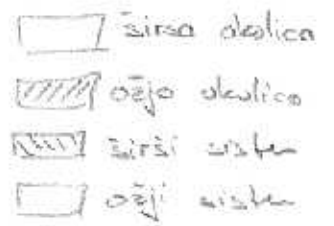 širša okolica
ožja okolica
širši sistem
ožji sistem